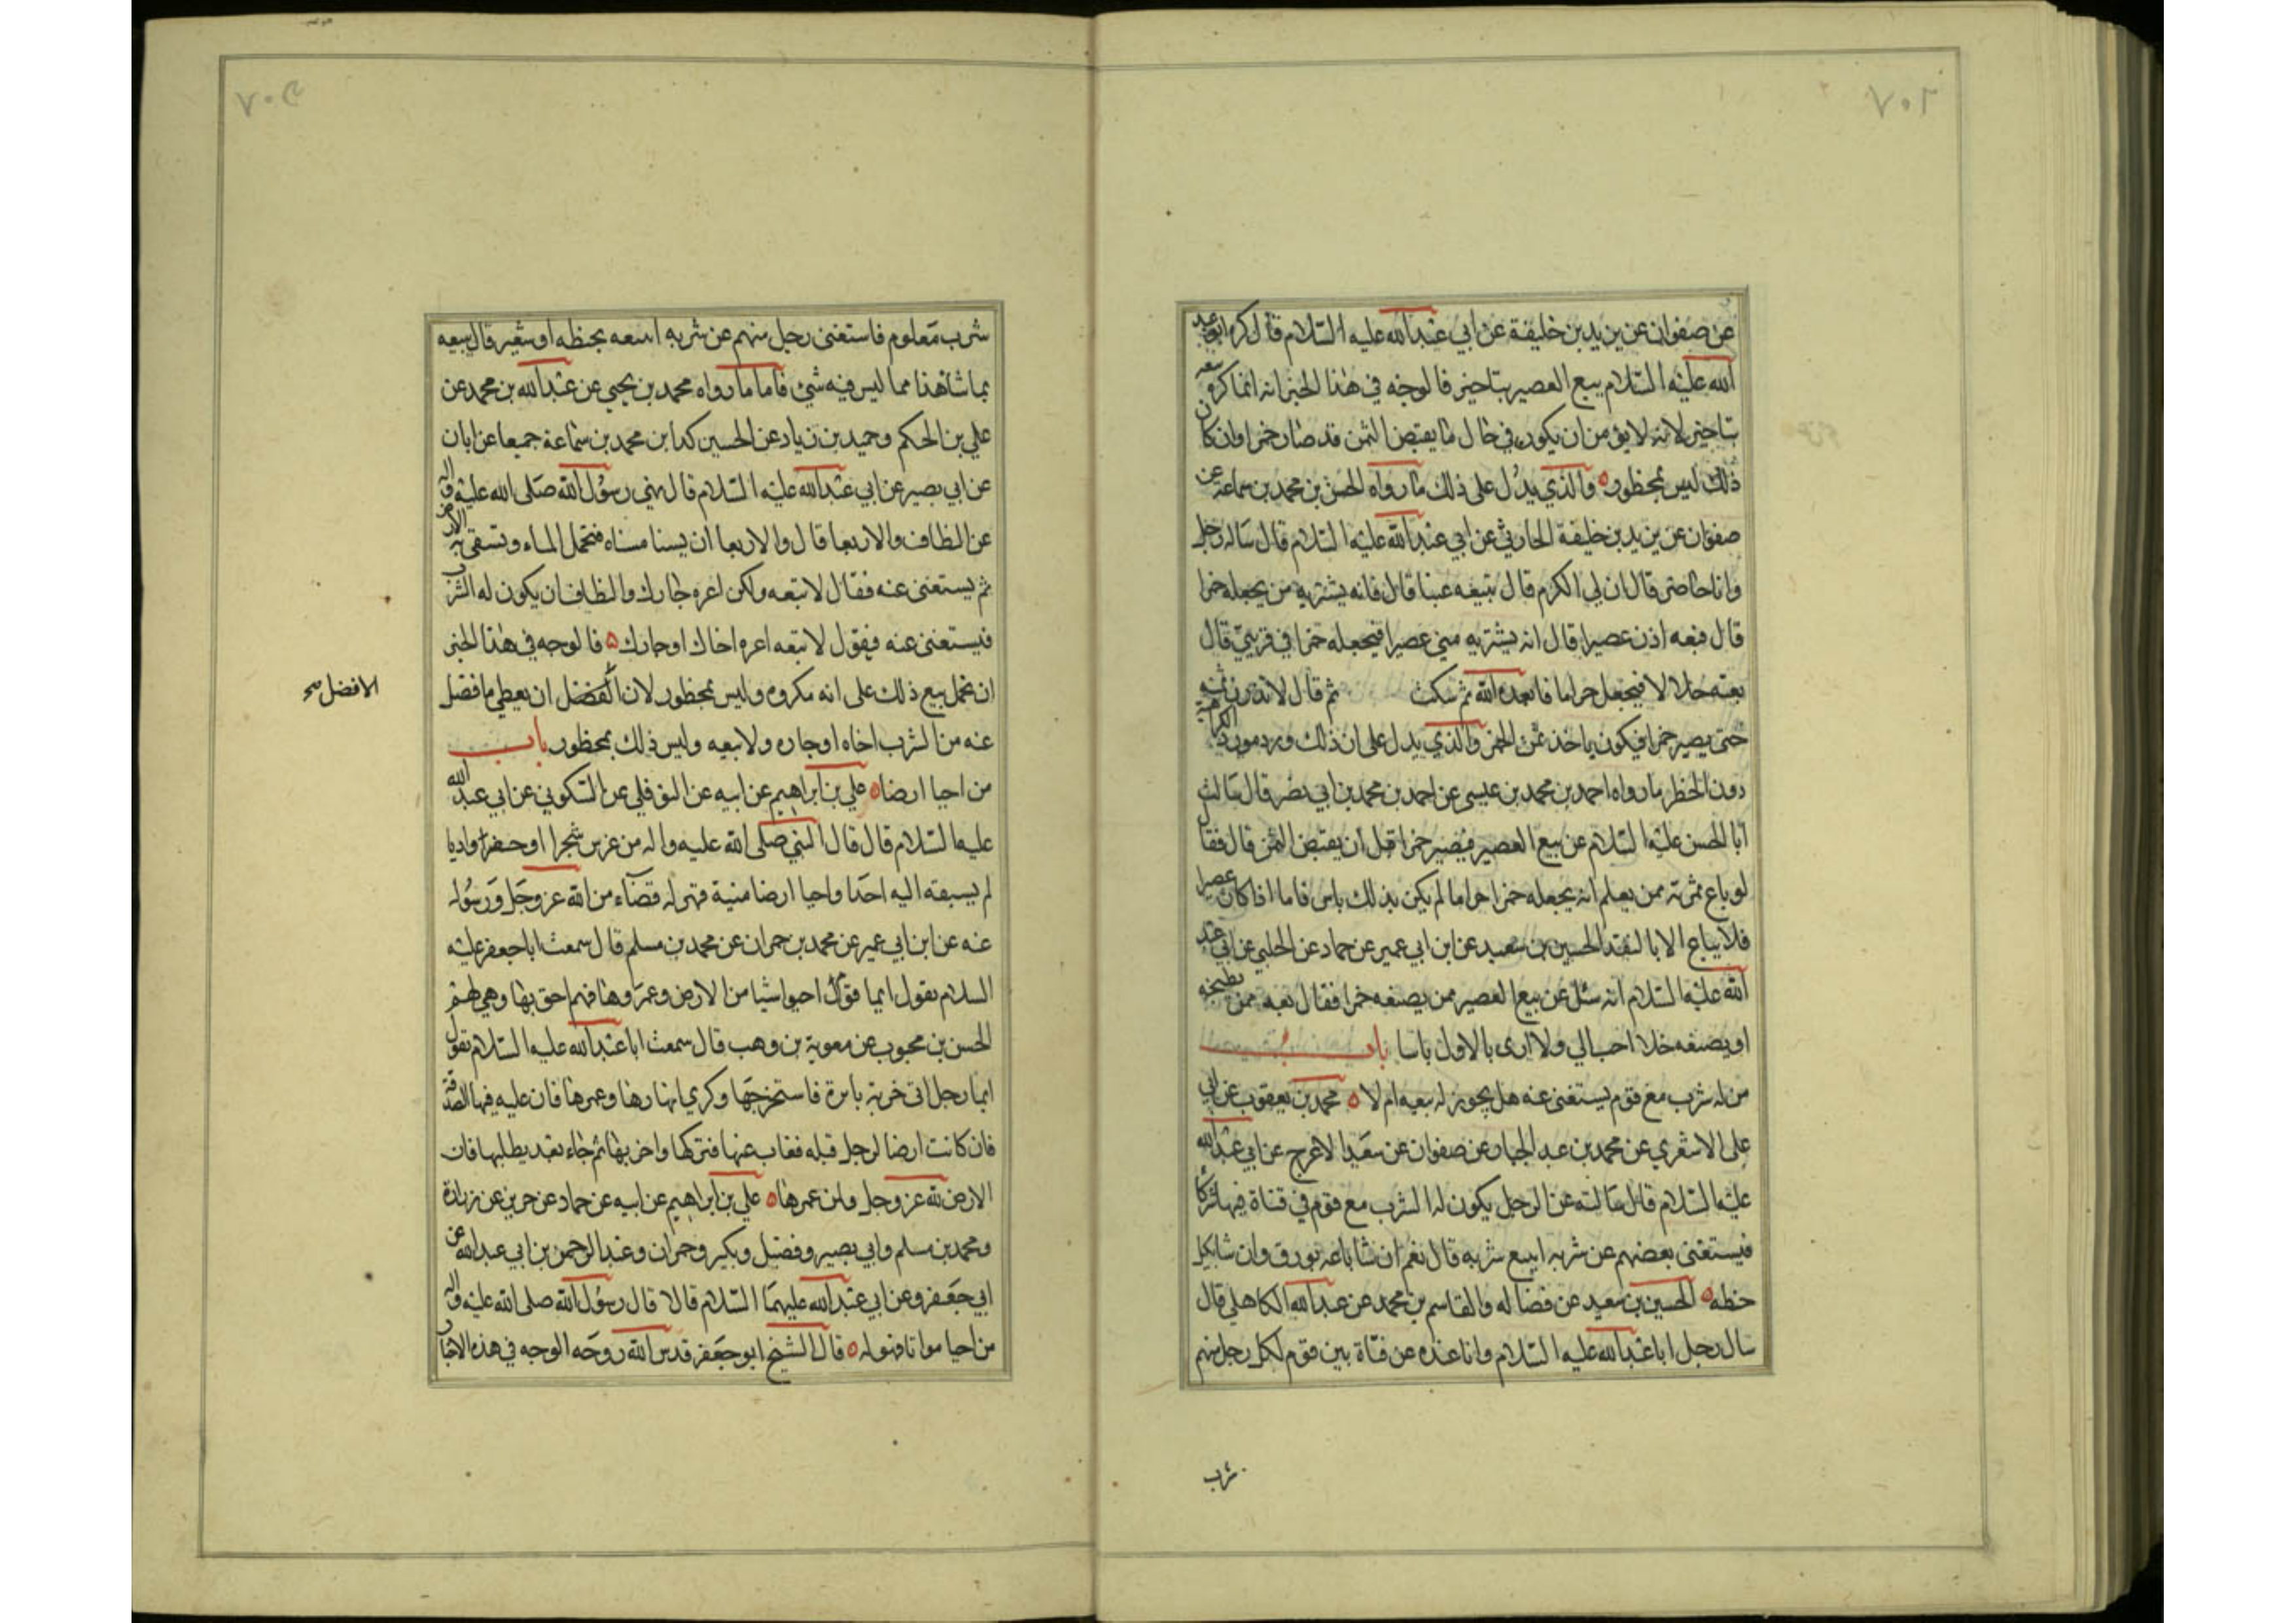 عن صفوان عن يزيد بن خليفة عن ابي عبدالله عليه السلام قال كره ابو عبد
الله عليه السلام بيع العصير بتاخير فالوجه في هذا الخبر انه انما كره بيعه
بتاخير لانه لا يؤمن ان يكون في حال ما يقبض الثمن قد صار خمرا وان كان
ذلك ليس بمحظور ه والذي يدل على ذلك ما رواه الحسن بن محمد بن سماعة عن
صفوان عن يزيد بن خليفة الحارثي عن ابي عبدالله عليه السلام قال ساله رجل
وانا حاضر قال ان لي الكرم قال تبيعه عنبا قال فانه يشتريه من يجعله خمرا
قال فبعه اذن عصيرا قال انه يشتريه مني عصيرا فيجعله خمرا في قربتي قال
بعته حلالا فيجعل حراما فابعده الله ثم سكت ثم قال لا تذرن ثمنه
حتى يصير خمرا فيكون ياخذ ثمن الخمر والذي يدل على ان ذلك ورد مورد الكراهية
دون الحظر ما رواه احمد بن محمد بن عيسى عن احمد بن محمد بن ابي نصر قال سالت
ابا الحسن عليه السلام عن بيع العصير فيصير خمرا قبل ان يقبض الثمن قال فقال
لو باع ثمرته ممن يعلم انه يجعله خمرا حراما لم يكن بذلك باس فاما اذا كان عصيرا
فلا يباع الا بالنقد الحسين بن سعيد عن ابن ابي عمير عن حماد عن الحلبي عن ابي عبد
الله عليه السلام انه سئل عن بيع العصير ممن يصنعه خمرا فقال بعه ممن يطبخه
او يصنعه خلا احب الي ولا ارى بالاول باسا باب
من له شرب مع قوم يستغنى عنه هل يجوز له بيعه ام لا ه محمد بن يعقوب عن ابي
علي الاشعري عن محمد بن عبد الجبار عن صفوان عن سعيد الاعرج عن ابي عبدالله
عليه السلام قال سالته عن الرجل يكون له الشرب مع قوم في قناة فيها شركا
فيستغنى بعضهم عن شربه ابيع شربه قال نعم ان شا باعه بورق وان شا بكيل
حنطه ه الحسين بن سعيد عن فضاله والقاسم بن محمد عن عبدالله الكاهلي قال
سال رجل ابا عبدالله عليه السلام وانا عنده عن قناة بين قوم لكل رجل منهم
شرب
شرب معلوم فاستغنى رجل منهم عن شربه ايبيعه بحنطه او شعير قال يبيعه
بما شا هذا مما ليس فيه شئ فاما ما رواه محمد بن يحيى عن عبدالله بن محمد عن
علي بن الحكم وحميد بن زياد عن الحسين كذا بن محمد بن سماعة جميعا عن ابان
عن ابي بصير عن ابي عبدالله عليه السلام قال نهى رسول الله صلى الله عليه واله
عن النطاف والاربعا قال والاربعا ان يسنا مسناه فتحمل الماء وتسقى به الارض
ثم يستغنى عنه فقال لا تبعه ولكن اعره جارك والنطاف ان يكون له الشرب
فيستغنى عنه فيقول لا تبعه اعره اخاك او جارك ه فالوجه في هذا الخبر
ان نحمل بيع ذلك على انه مكروه وليس بمحظور لان الفضل ان يعطي ما فضل
الافضل صح
عنه من الشرب اخاه او جاره ولا يبيعه وليس ذلك بمحظور باب
من احيا ارضا ه علي بن ابراهيم عن ابيه عن النوفلي عن السكوني عن ابي عبدالله
عليه السلام قال قال النبي صلى الله عليه واله من غرس شجرا او حفر واديا
لم يسبقه اليه احدا واحيا ارضا ميتة فهي له قضاء من الله عز وجل ورسوله
عنه عن ابن ابي عمير عن محمد بن حمران عن محمد بن مسلم قال سمعت ابا جعفر عليه
السلام يقول ايما قوم احيوا شيا من الارض وعمروها فهم احق بها وهي لهم
الحسن بن محبوب عن معوية بن وهب قال سمعت ابا عبدالله عليه السلام يقول
ايما رجل اتى خربة بائرة فاستخرجها وكرى انهارها وعمرها فان عليه فيها الصدقة
فان كانت ارضا لرجل قبله فغاب عنها فتركها واخربها ثم جاء بعد يطلبها فان
الارض لله عز وجل ولمن عمرها ه علي بن ابراهيم عن ابيه عن حماد عن حريز عن زرارة
ومحمد بن مسلم وابي بصير وفضيل وبكير وحمران وعبد الرحمن بن ابي عبدالله عن
ابي جعفر وعن ابي عبدالله عليهما السلام قالا قال رسول الله صلى الله عليه واله
من احيا مواتا فهو له ه قال الشيخ ابو جعفر قدس الله روحه الوجه في هذه الاخبار